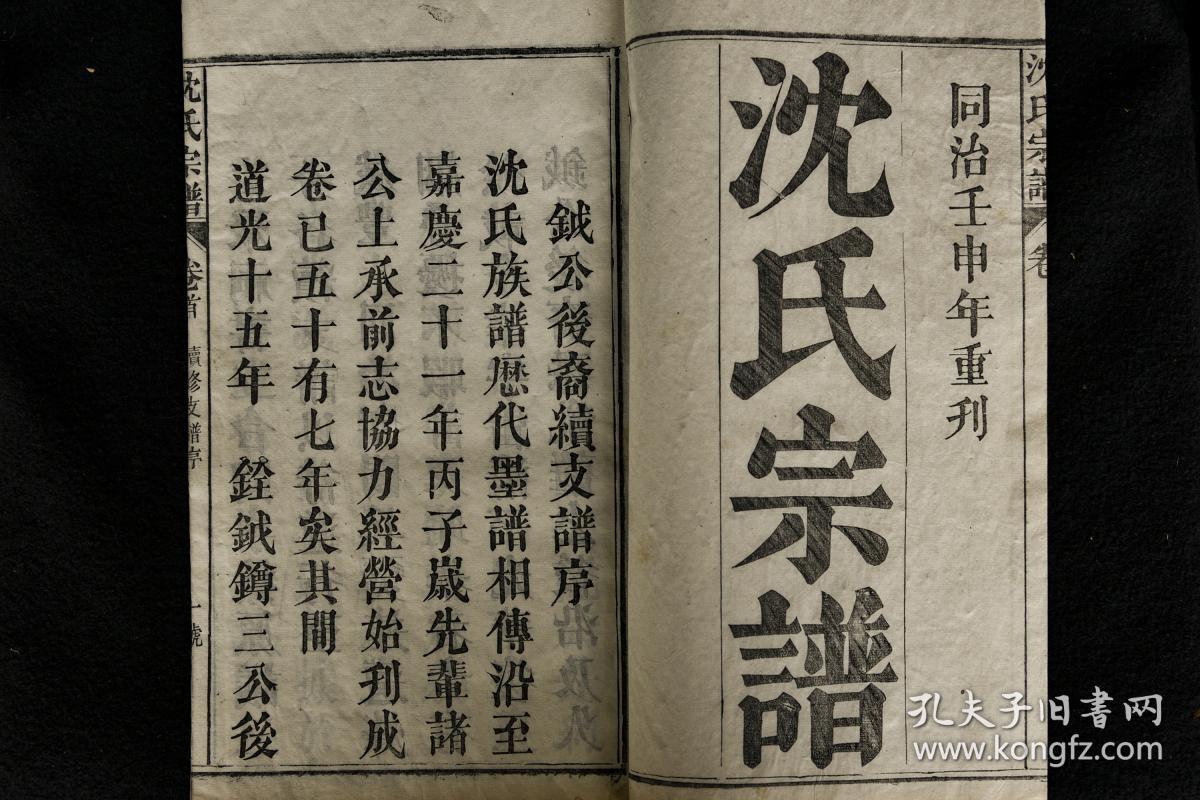 沈氏宗譜
卷
同治壬申年重刊
沈氏宗譜
鉞公後裔續支譜序
沈氏族譜歴代墨譜相傳沿至
嘉慶二十一年丙子嵗先輩諸
公上承前志協力經營始刋成
卷已五十有七年矣其間
道光十五年 銓鉞鐏三公後
沈氏宗譜
卷首
續修支譜序
一號
孔夫子旧书网
www.kongfz.com